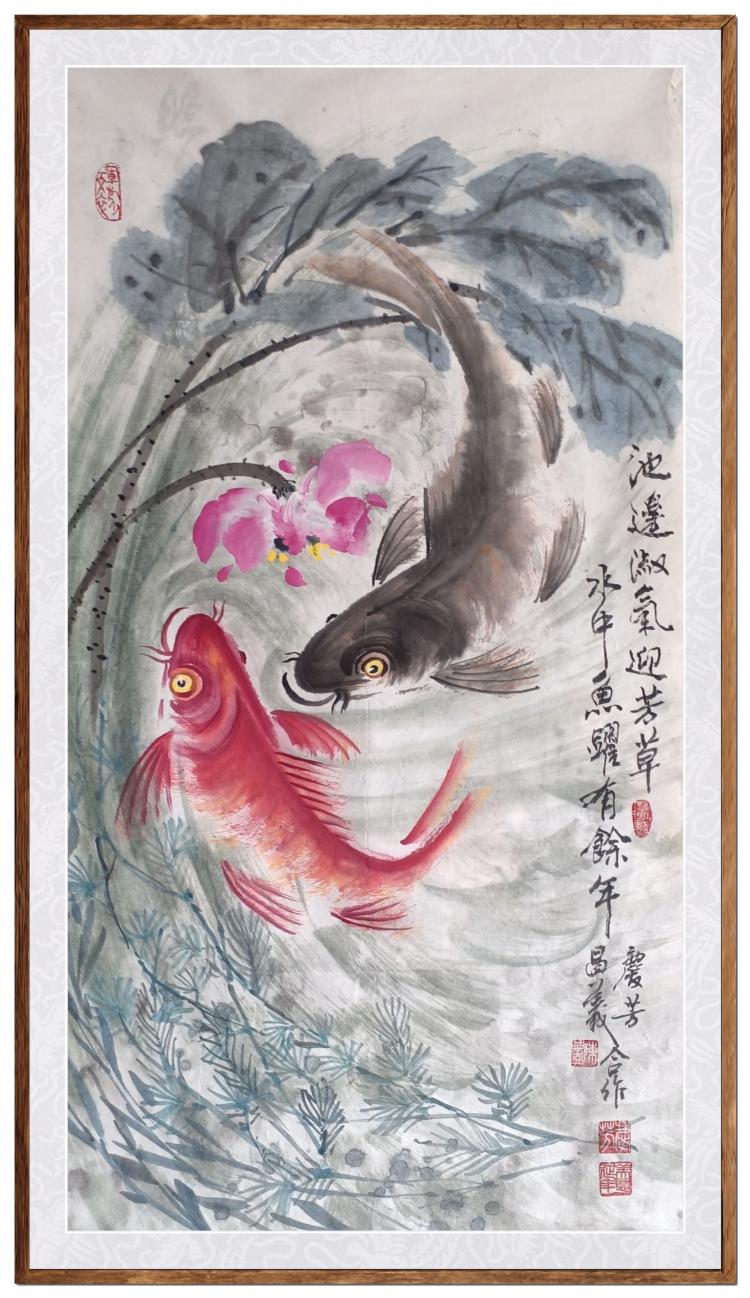 池邊淑氣迎芳草
水中魚躍有餘年
慶芳
昌義合作